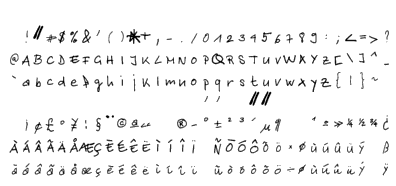 ! " # $ % & ' ( ) * + , - . / 0 1 2 3 4 5 6 7 8 9 : ; < = > ?
@ A B C D E F G H I J K L M N O P Q R S T U V W X Y Z [ \ ] ^ _
` a b c d e f g h i j k l m n o p q r s t u v w x y z { | } ~
‘ ’ “ ”
¡ ¢ £ ¤ ¥ ¦ § ¨ © ª « ® ¯ ° ± ² ³ ´ µ ¶ ¹ º » ¼ ½ ¾ ¿
À Á Â Ã Ä Å Æ Ç È É Ê Ë Ì Í Î Ï Ñ Ò Ó Ô Õ Ö × Ø Ù Ú Û Ü Ý ß
à á â ã ä å æ ç è é ê ë ì í î ï ñ ò ó ô õ ö ÷ ø ù ú û ü ý ÿ